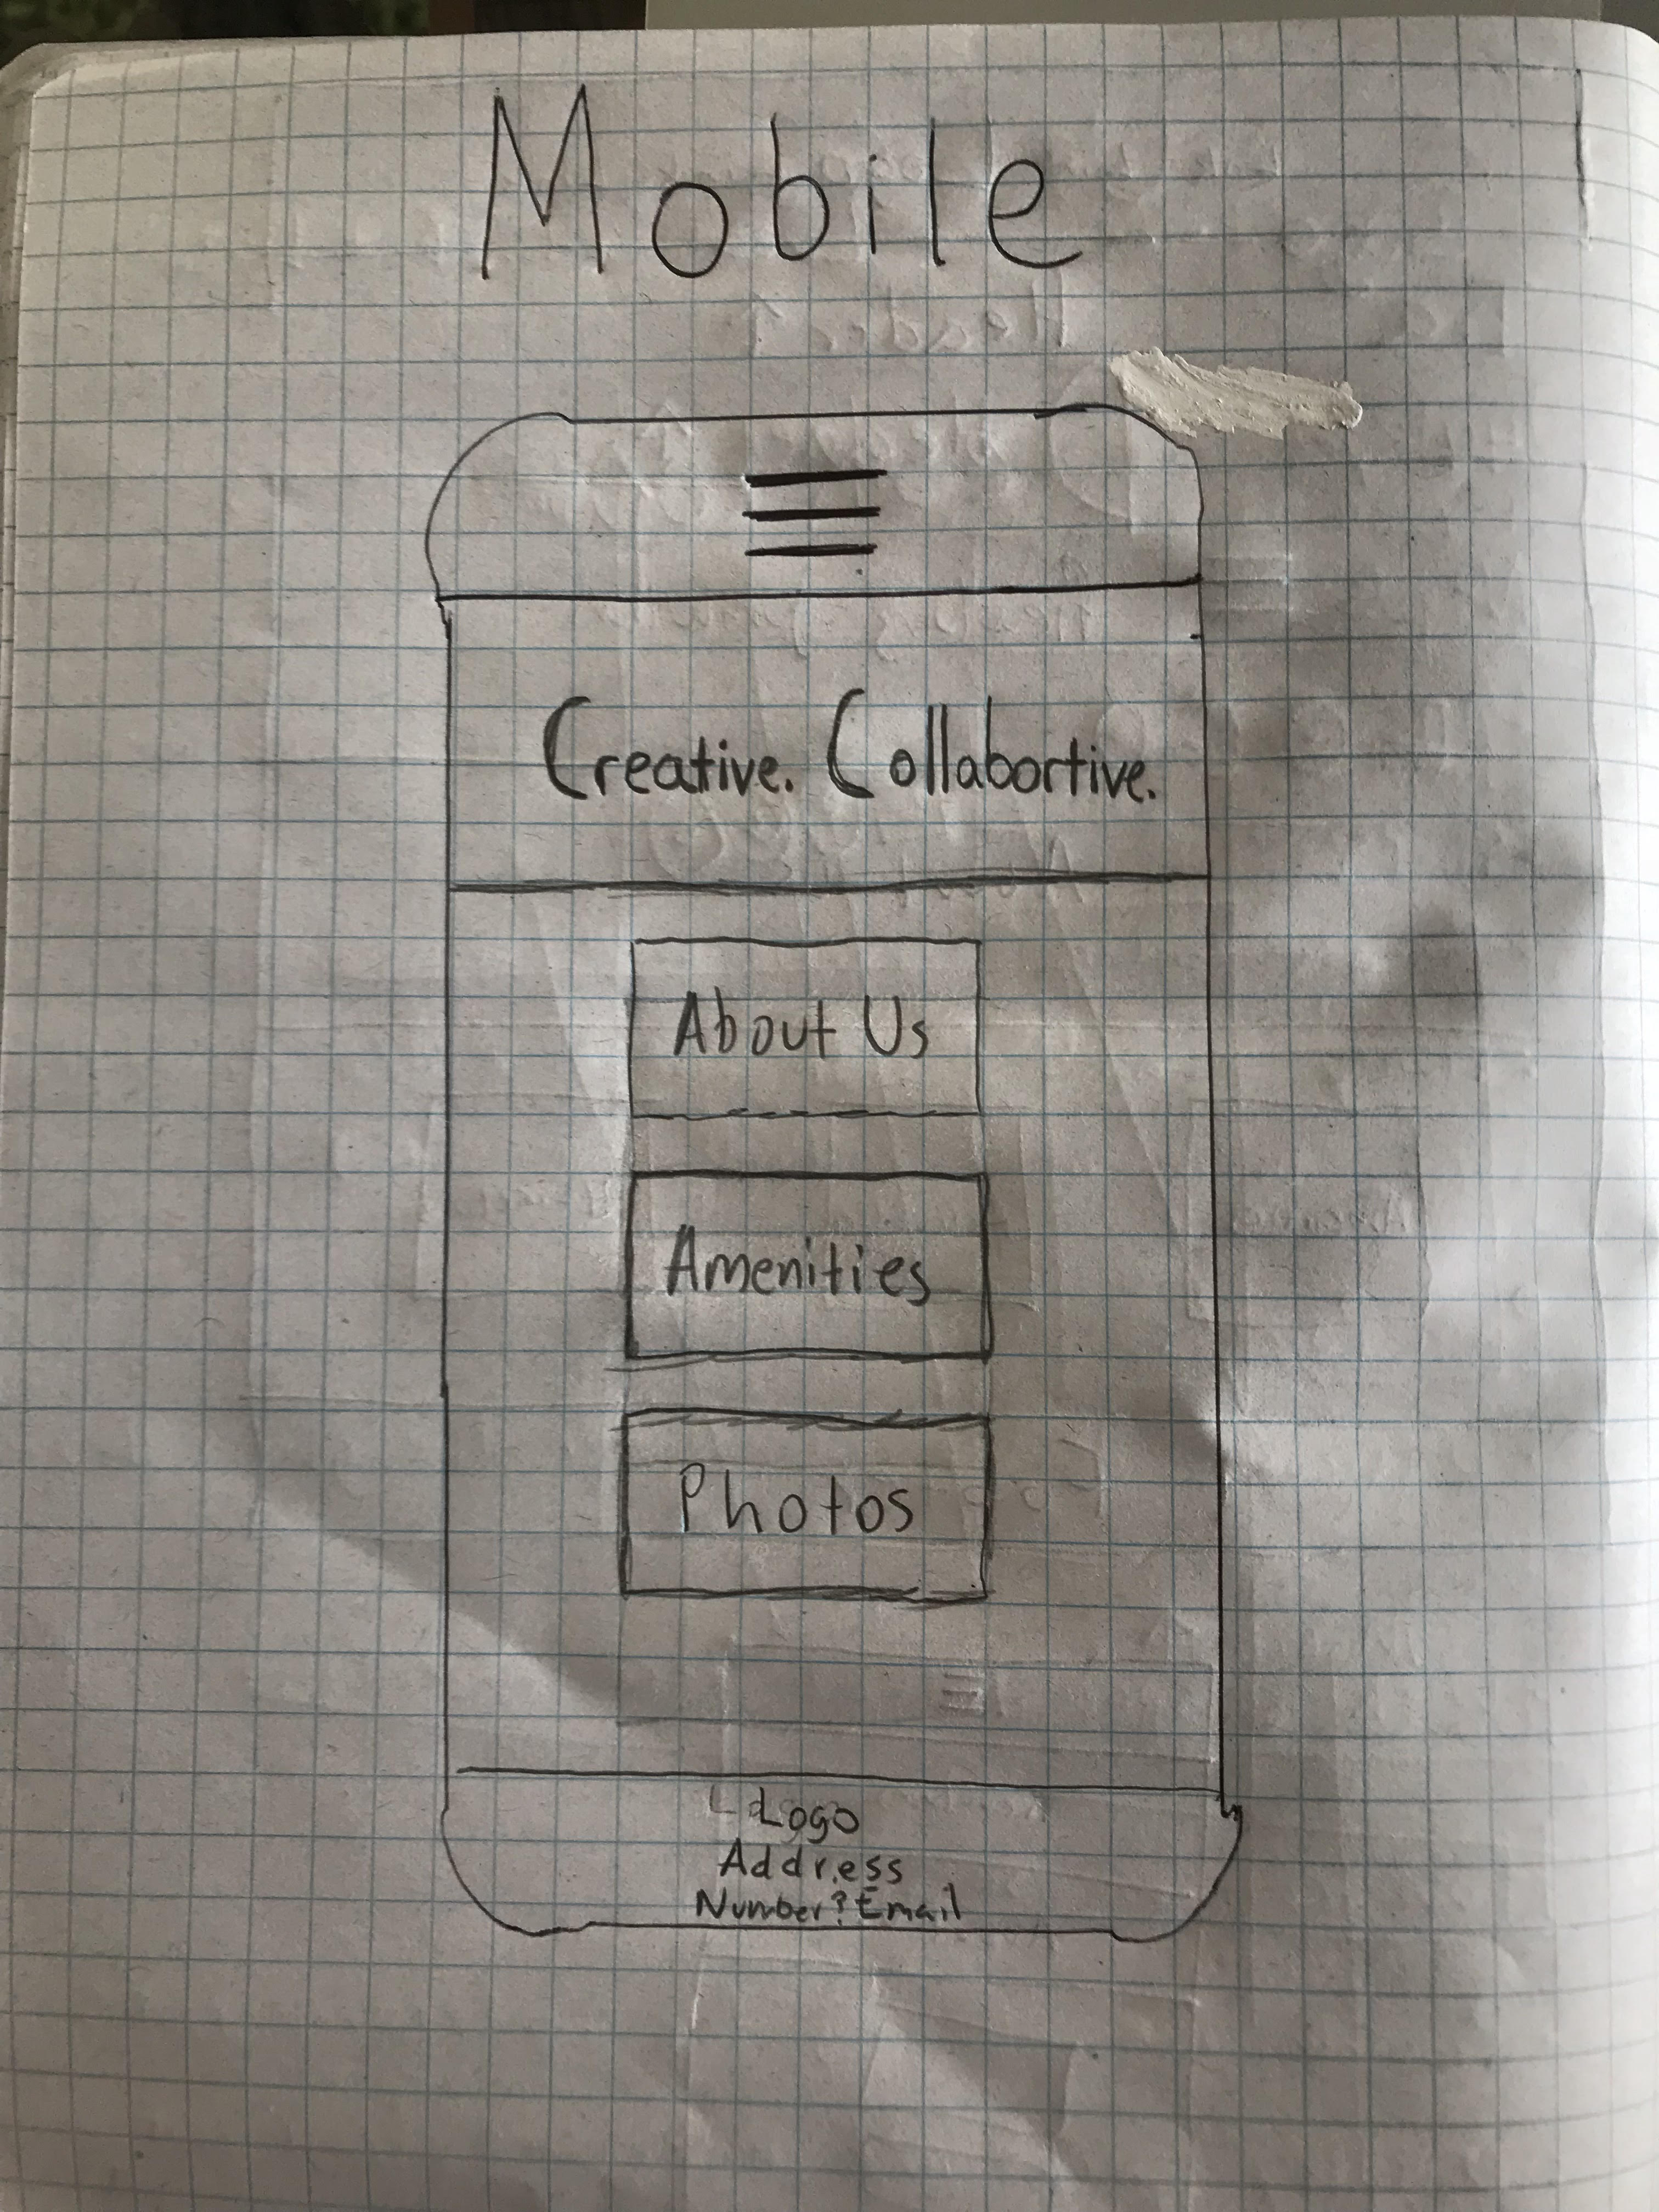 Mobile
Creative. Collabortive.
About Us
Amenities
Photos
Logo
Address
Number? Email